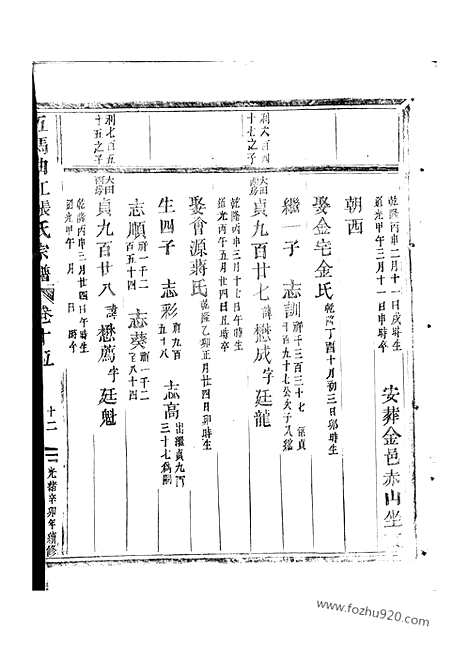 乾隆丙申二月十一日戌時生
道光甲午三月十一日辰時卒
安葬金邑赤山坐
朝西
娶金宅金氏
乾隆丁酉十月初三日卯時生
繼一子 志訓
利六百四
十七之子
貞九百廿七 諱懋成字廷龍
乾隆丙申三月十七日午時生
道光丙午五月廿四日丑時卒
娶會源蔣氏
乾隆乙卯正月廿四日卯時生
生四子 志彩 志高
府九百
五十八
出繼貞九百
三十七為嗣
志順 志葵
府一千二
百五十四
府一千二
百八十四
利七百五
十五之子
貞九百廿八 諱懋薦字廷魁
乾隆丙申三月廿四日午時生
道光甲午 月 日 時卒
五馬曲江張氏宗譜 卷十五
十二
光緒辛卯年續修
www.fozhu920.com